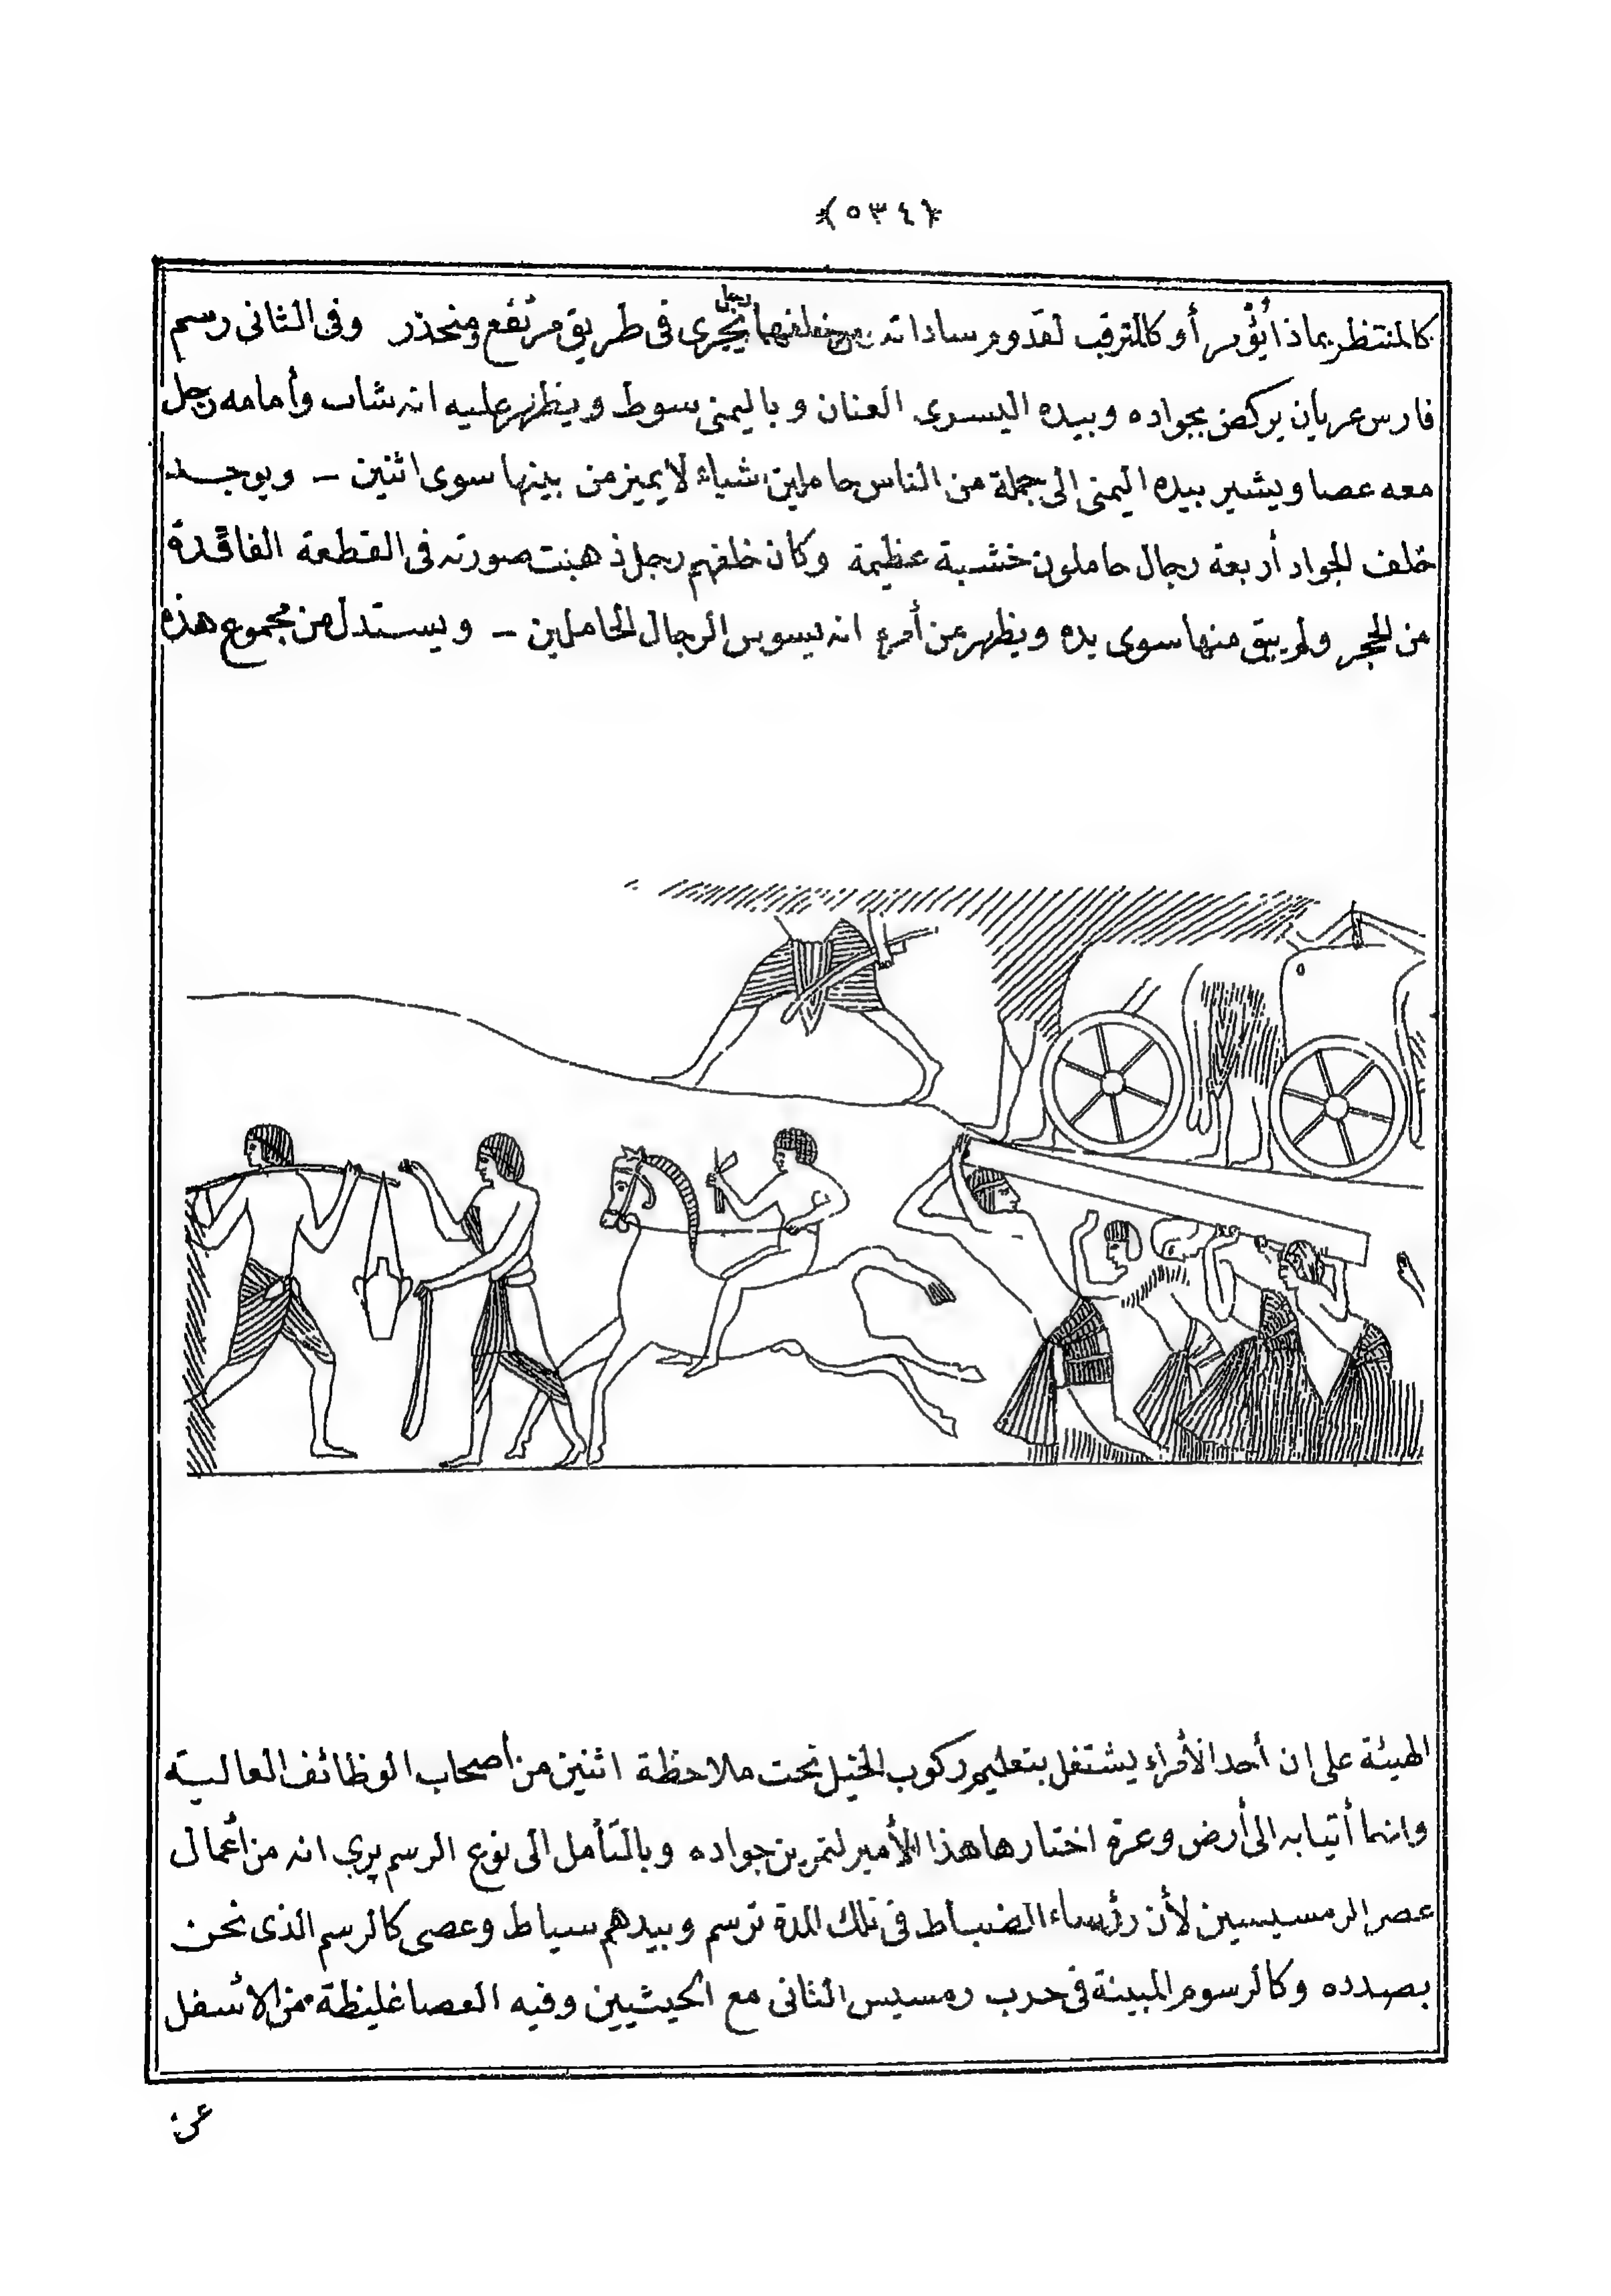 ﴿٥٣٤﴾
كالمنتظر بماذا يُؤمر أو كالمترقب لقدوم ساداته ومن خلفها رجل يجرى فى طريق مرتفع ومنحدر وفى الثانى رسم
فارس عريان يركض بجواده وبيده اليسرى العنان وباليمنى سوط ويظهر عليه انه شاب وأمامه رجل
معه عصا ويشير بيده اليمنى الى جملة من الناس حاملين اشياء لا يميز من بينها سوى اثنين – ويوجد
خلف الجواد أربعة رجال حاملون خشبة عظيمة وكان خلفهم رجل ذهبت صورته فى القطعة الفاقدة
من الحجر ولم يبق منها سوى يده ويظهر من أمره انه يسوس الرجال الحاملين – ويستدل من مجموع هذه
الهيئة على ان أحد الأمراء يشتغل بتعليم ركوب الخيل تحت ملاحظة اثنين من أصحاب الوظائف العالية
وانهما أتيا به الى أرض وعرة اختارها هذا الأمير لتمرين جواده وبالتأمل الى نوع الرسم يرى انه من أعمال
عصر الرمسيسين لأن رؤساء الضباط فى تلك المدة ترسم وبيدهم سياط وعصى كالرسم الذى نحن
بصدده وكالرسوم المبينة فى حرب رمسيس الثانى مع الحيثيين وفيه العصا غليظة من الاسفل
عن